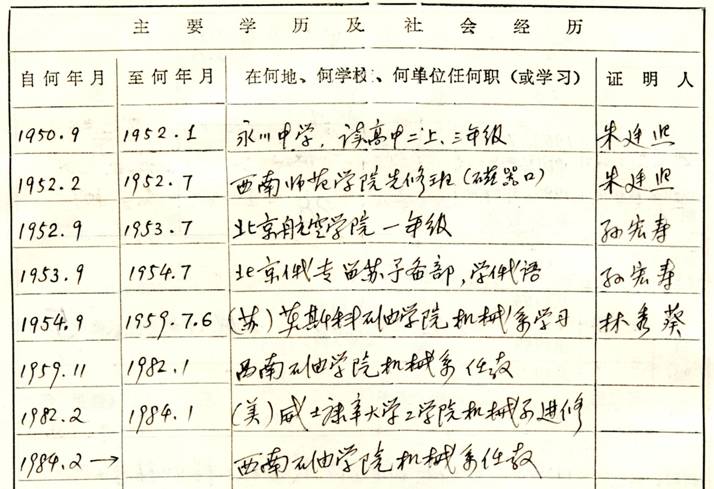 主要学历及社会经历
自何年月 至何年月 在何地、何学校、何单位任何职（或学习） 证明人
1950.9 1952.1 永川中学，读高中二上、三年级 朱廷照
1952.2 1952.7 西南师范学院先修班（磁器口） 朱廷照
1952.9 1953.7 北京航空学院一年级 孙宏寿
1953.9 1954.7 北京俄专留苏予备部，学俄语 孙宏寿
1954.9 1959.7.6 (苏)莫斯科石油学院机械系学习 林秀葵
1959.11 1982.1 西南石油学院机械系任教
1982.2 1984.1 (美)威士康辛大学工学院机械系进修
1984.2→ 西南石油学院机械系任教